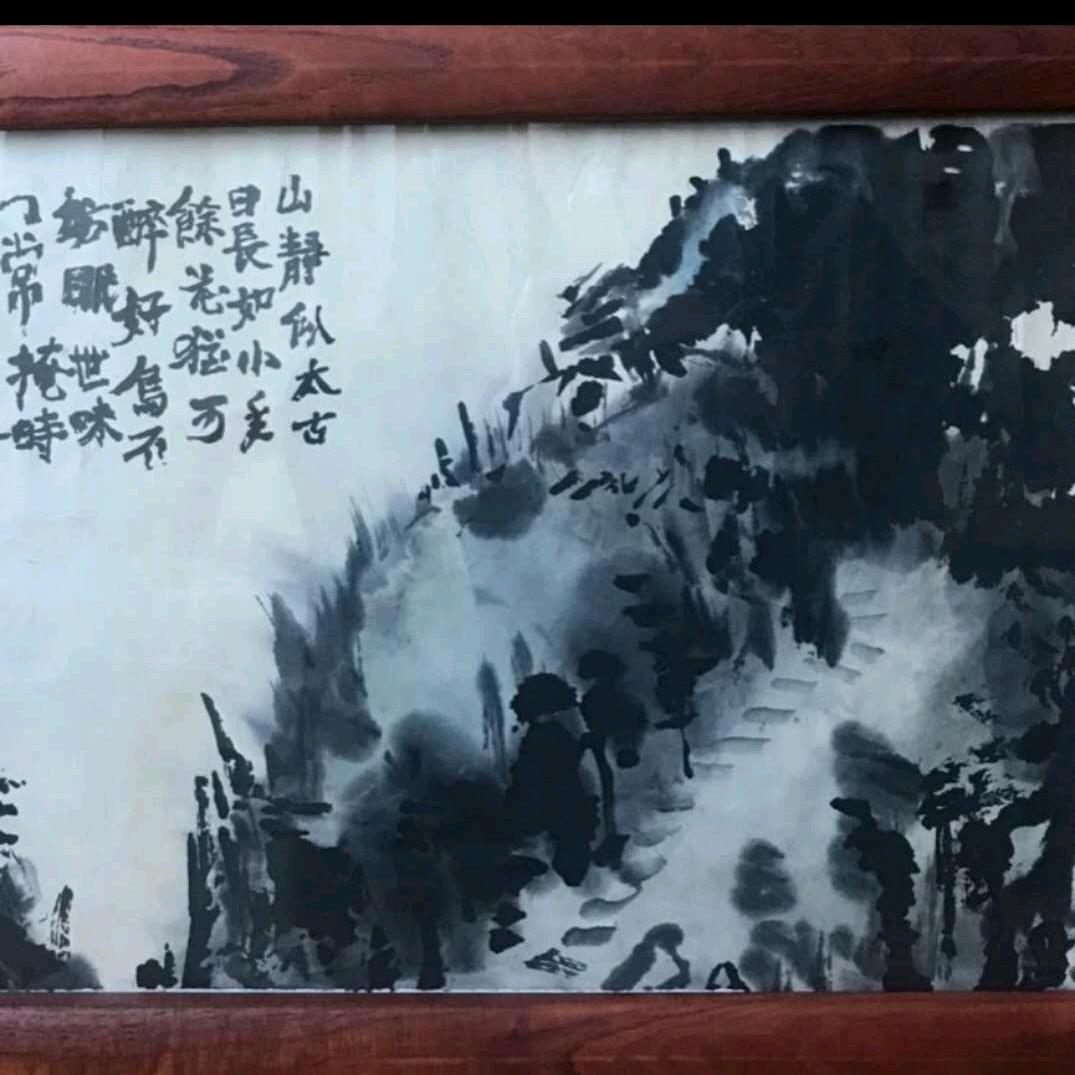 山靜似太古
日長如小年
餘花猶可
醉好鳥不
妨眠世味
門常掩時